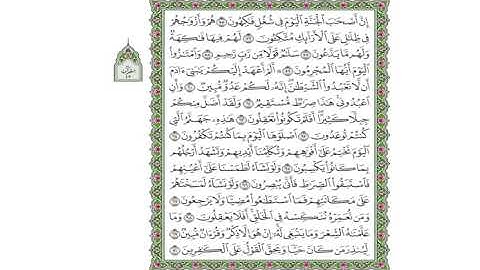 إِنَّ أَصْحَٰبَ ٱلْجَنَّةِ ٱلْيَوْمَ فِى شُغُلٍ فَٰكِهُونَ ٥٥ هُمْ وَأَزْوَٰجُهُمْ
فِى ظِلَٰلٍ عَلَى ٱلْأَرَآئِكِ مُتَّكِـُٔونَ ٥٦ لَهُمْ فِيهَا فَٰكِهَةٌ
وَلَهُم مَّا يَدَّعُونَ ٥٧ سَلَٰمٌ قَوْلًا مِّن رَّبٍّ رَّحِيمٍ ٥٨ وَٱمْتَٰزُوا۟
ٱلْيَوْمَ أَيُّهَا ٱلْمُجْرِمُونَ ٥٩ أَلَمْ أَعْهَدْ إِلَيْكُمْ يَٰبَنِىٓ ءَادَمَ
أَن لَّا تَعْبُدُوا۟ ٱلشَّيْطَٰنَ إِنَّهُۥ لَكُمْ عَدُوٌّ مُّبِينٌ ٦٠ وَأَنِ
ٱعْبُدُونِى هَٰذَا صِرَٰطٌ مُّسْتَقِيمٌ ٦١ وَلَقَدْ أَضَلَّ مِنكُمْ
جِبِلًّا كَثِيرًا أَفَلَمْ تَكُونُوا۟ تَعْقِلُونَ ٦٢ هَٰذِهِۦ جَهَنَّمُ ٱلَّتِى
كُنتُمْ تُوعَدُونَ ٦٣ ٱصْلَوْهَا ٱلْيَوْمَ بِمَا كُنتُمْ تَكْفُرُونَ ٦٤
ٱلْيَوْمَ نَخْتِمُ عَلَىٰٓ أَفْوَٰهِهِمْ وَتُكَلِّمُنَآ أَيْدِيهِمْ وَتَشْهَدُ أَرْجُلُهُم
بِمَا كَانُوا۟ يَكْسِبُونَ ٦٥ وَلَوْ نَشَآءُ لَطَمَسْنَا عَلَىٰٓ أَعْيُنِهِمْ
فَٱسْتَبَقُوا۟ ٱلصِّرَٰطَ فَأَنَّىٰ يُبْصِرُونَ ٦٦ وَلَوْ نَشَآءُ لَمَسَخْنَٰهُمْ
عَلَىٰ مَكَانَتِهِمْ فَمَا ٱسْتَطَٰعُوا۟ مُضِيًّا وَلَا يَرْجِعُونَ ٦٧
وَمَن نُّعَمِّرْهُ نُنَكِّسْهُ فِى ٱلْخَلْقِ أَفَلَا يَعْقِلُونَ ٦٨ وَمَا
عَلَّمْنَٰهُ ٱلشِّعْرَ وَمَا يَنۢبَغِى لَهُۥٓ إِنْ هُوَ إِلَّا ذِكْرٌ وَقُرْءَانٌ مُّبِينٌ ٦٩
لِّيُنذِرَ مَن كَانَ حَيًّا وَيَحِقَّ ٱلْقَوْلُ عَلَى ٱلْكَٰفِرِينَ ٧٠